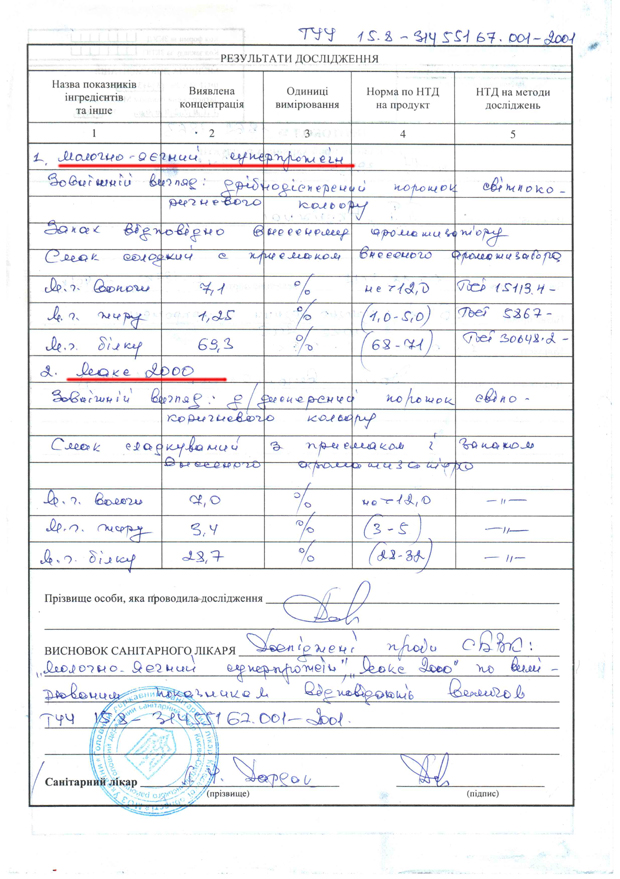 ТУУ 15.8-31455167.001-2001
РЕЗУЛЬТАТИ ДОСЛІДЖЕННЯ
Назва показників інгредієнтів та інше
Виявлена концентрація
Одиниці вимірювання
Норма по НТД на продукт
НТД на методи досліджень
1 2 3 4 5
1. Молочно-яєчний суперпротеїн
Зовнішній вигляд: дрібнодісперсний порошок світлоко-
ричневого кольору
Запах відповідно внесеному ароматизатору
Смак солодкий с присмаком внесеного ароматизатора
М.г. вологи 7,1 % не > 12,0 Гост 15113.4-
М.г. жиру 1,25 % (1,0-5,0) Гост 5867-
М.г. білку 69,3 % (68-71) Гост 30648.2-
2. Макс 2000
Зовнішній вигляд: д/дисперсний порошок світло-
коричневого кольору
Смак сладкуватий з присмаком і запахом
внесеного ароматизатора
М.г. вологи 7,0 % не > 12,0 -"-
М.г. жиру 3,4 % (3-5) -"-
М.г. білку 28,7 % (28-32) -"-
Прізвище особи, яка проводила дослідження
ВИСНОВОК САНІТАРНОГО ЛІКАРЯ Досліджені проби СБВК:
„Молочно-яєчний суперпротеїн", „Макс 2000" по вимі-
рюваним показникам відповідають вимогам
ТУУ 15.8-31455167.001-2001.
Санітарний лікар
(прізвище) (підпис)